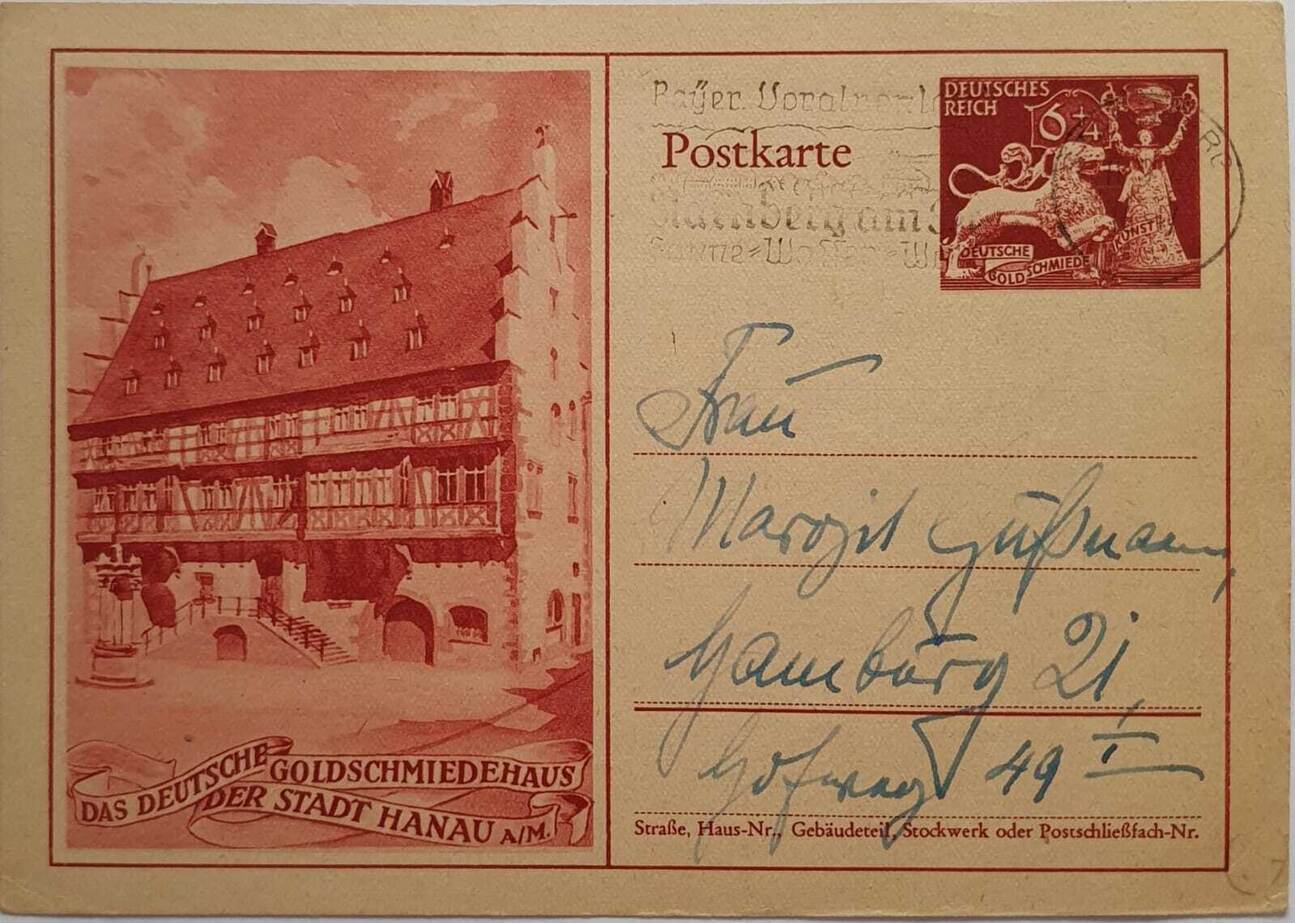 DAS DEUTSCHE GOLDSCHMIEDEHAUS
DER STADT HANAU A/M.
Bayer. Voralpenla
Postkarte
Starnberg am S
DEUTSCHES
REICH
6+4
DEUTSCHE
GOLDSCHMIEDE
KUNST
Frau
Margit Gußmann,
Hamburg 21,
Hofweg 49 I
Straße, Haus-Nr., Gebäudeteil, Stockwerk oder Postschließfach-Nr.